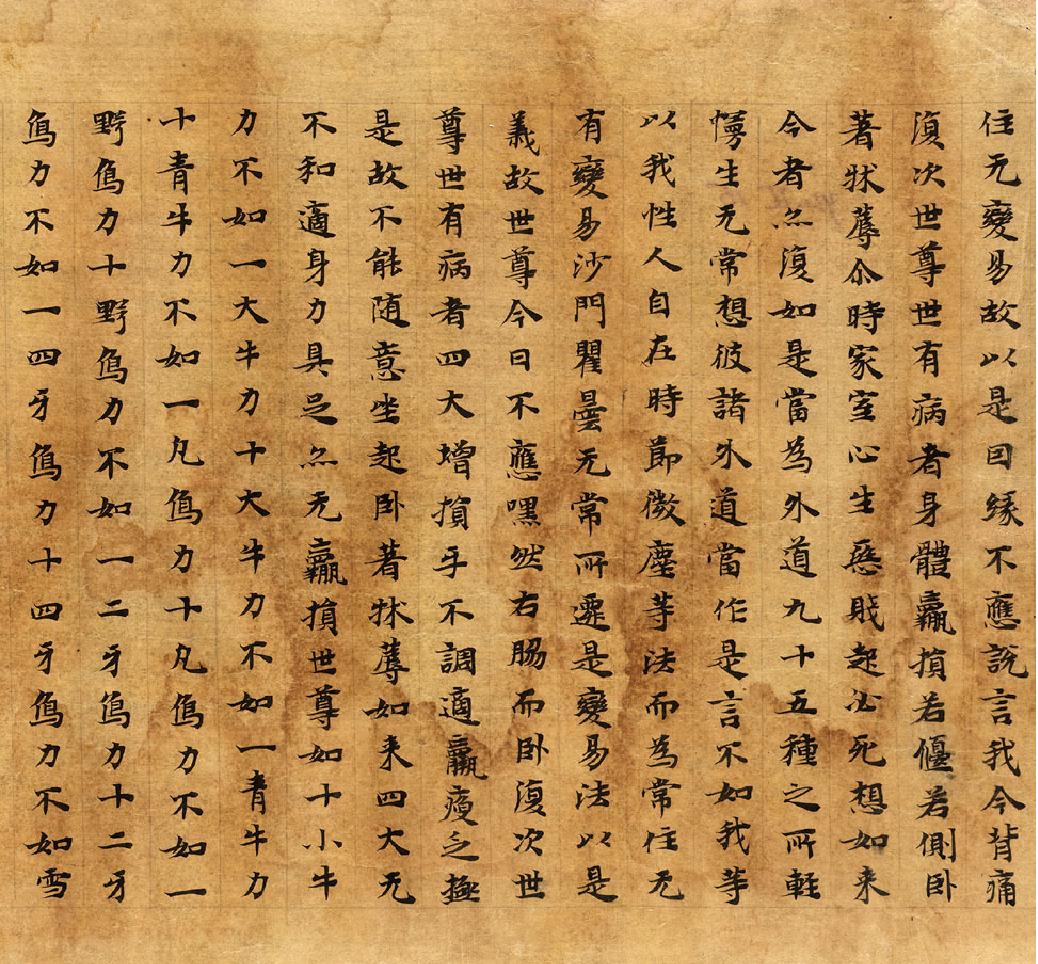 住无變易故以是因緣不應說言我今背痛
復次世尊世有病者身體羸損若偃若側卧
著牀蓐尒時家室心生惡賤起必死想如来
今者亦復如是當為外道九十五種之所輕
慢生无常想彼諸外道當作是言不如我等
以我性人自在時節微塵等法而為常住无
有變易沙門瞿曇无常所遷是變易法以是
義故世尊今日不應嘿然右脇而卧復次世
尊世有病者四大增損乎不調適羸瘦乏極
是故不能随意坐起卧著牀蓐如来四大无
不和適身力具足亦无羸損世尊如十小牛
力不如一大牛力十大牛力不如一青牛力
十青牛力不如一凡象力十凡象力不如一
野象力十野象力不如一二牙象力十二牙
象力不如一四牙象力十四牙象力不如雪